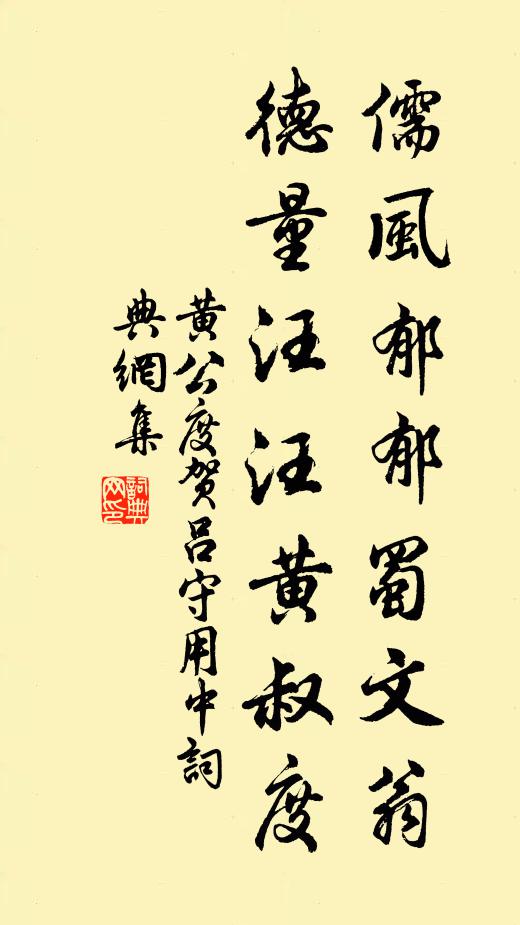 儒風郁郁蜀文翁
德量汪汪黃叔度
黃公度賀呂守用中詞
典網集
詞典網印